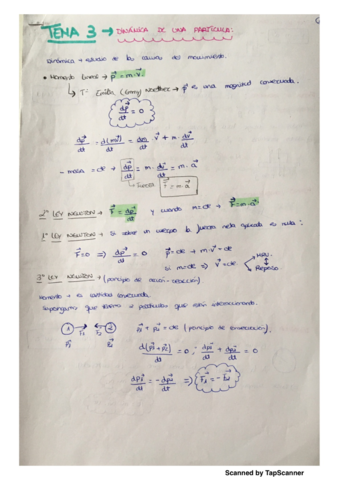 TEMA 3 → DINÁMICA DE UNA PARTÍCULA.
Dinámica → estudio de la causa del movimiento.
• Momento lineal → p⃗ = m·v⃗
↳ Tª Emilia (Emmy) Noether → p⃗ es una magnitud conservada.
dp⃗/dt = 0
dp⃗/dt = d(m·v⃗)/dt = dm/dt · v⃗ + m · dv⃗/dt
- masa = cte → dp⃗/dt = m · dv⃗/dt = m · a⃗
↳ Fuerza F⃗ = m·a⃗
2ª LEY NEWTON → F⃗ = dp⃗/dt y cuando m = cte → F⃗ = m·a⃗
1ª LEY NEWTON → Si sobre un cuerpo la fuerza neta aplicada es nula:
F⃗ = 0 ⇒ dp⃗/dt = 0 p⃗ = cte → m·v⃗ = cte MRU
Si m = cte ⇒ v⃗ = cte Reposo
3ª LEY NEWTON → (principio de acción-reacción)
Momento → es cantidad conservada.
Supongamos que tenemos 2 partículas que están interaccionando.
1 → ← 2 p⃗₁ + p⃗₂ = cte (principio de conservación).
p⃗₁ p⃗₂ d(p⃗₁ + p⃗₂)/dt = 0, dp⃗₁/dt + dp⃗₂/dt = 0
dp⃗₁/dt = - dp⃗₂/dt ⇒ F⃗₁ = - F⃗₂
Scanned by TapScanner